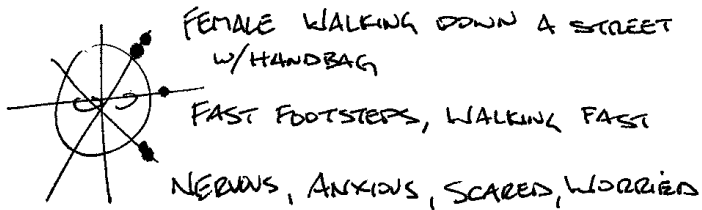 FEMALE WALKING DOWN A STREET
W/HANDBAG
FAST FOOTSTEPS, WALKING FAST
NERVOUS, ANXIOUS, SCARED, WORRIED